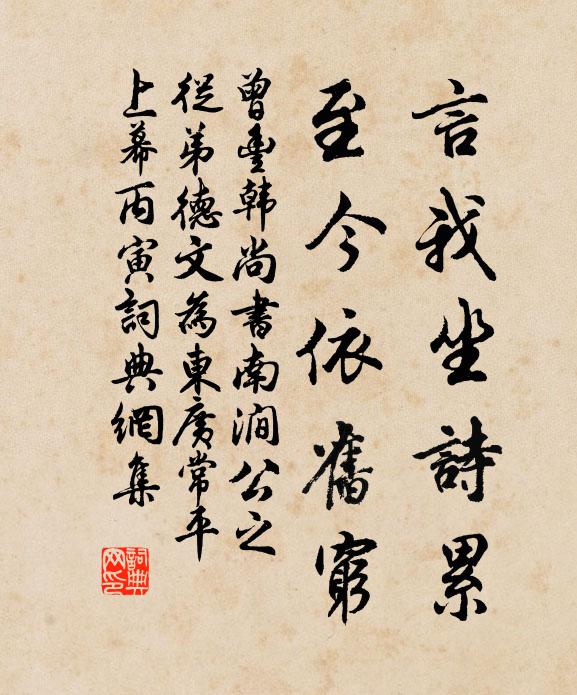 言我坐詩累
至今依舊窮
曾豐韓尚書南澗公之
從弟德文為東廣常平
上幕丙寅詞典網集
詞典
网印